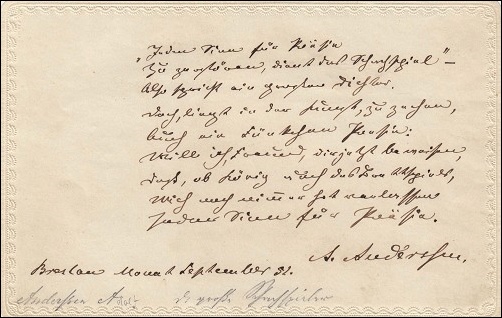 "Jeden Sinn für Poësie
Zu zerstören, dient das Schachspiel" –
Also spricht ein großer Dichter.
Doch, liegt in der Kunst, zu ziehen,
Auch ein Fünkchen Poesie:
Will ich, Freund, dir jetzt beweisen,
Daß, ob König auch des Brettspiels,
Mich noch nimmer hat verlassen
Jeder Sinn für Poësie.
A. Anderssen.
Breslau Monat September
Anderssen d. große Schachspieler